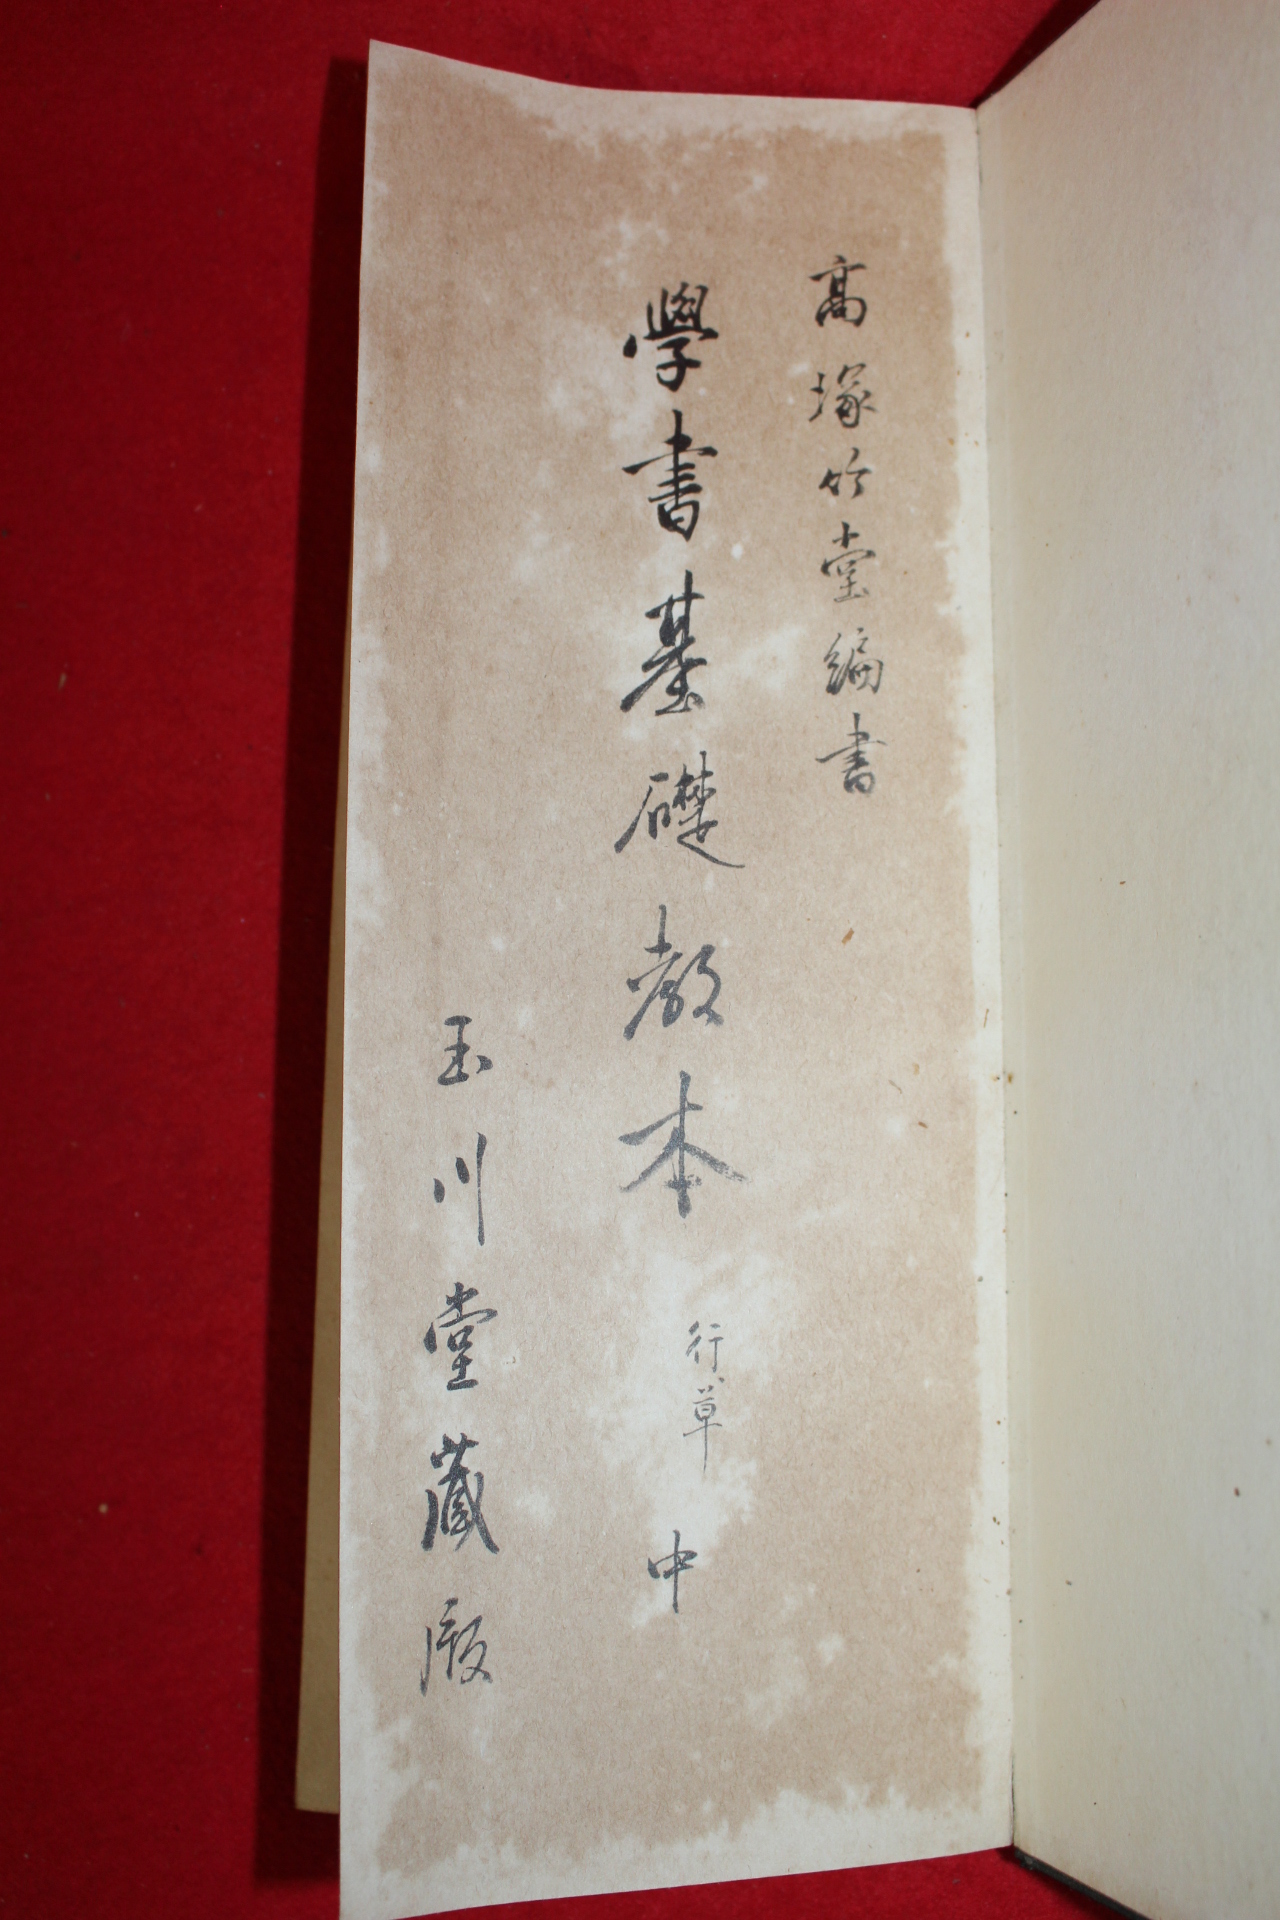 高塚竹堂編書
學書基礎教本 行草 中
玉川堂蔵版